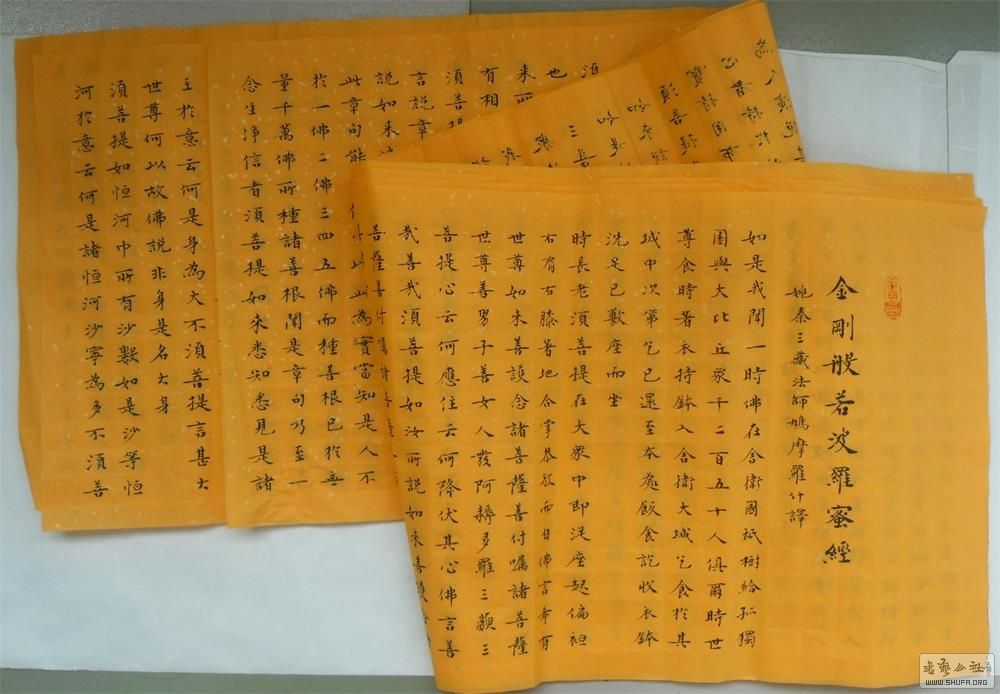 金剛般若波羅蜜經
姚秦三藏法師鳩摩羅什譯
如是我聞一時佛在舍衛國祇樹給孤獨
園與大比丘眾千二百五十人俱爾時世
尊食時著衣持鉢入舍衛大城乞食於其
城中次第乞已還至本處飯食訖收衣鉢
洗足已敷座而坐
時長老須菩提在大眾中即從座起偏袒
右肩右膝著地合掌恭敬而白佛言希有
世尊如來善護念諸菩薩善付囑諸菩薩
世尊善男子善女人發阿耨多羅三藐三
菩提心云何應住云何降伏其心佛言善
哉善哉須菩提如汝所說如來善護
菩薩善付囑諸菩薩
也
來所
有相
須菩提
言說章
說如來
此章句能 此為實當知是人不
於一佛二佛三四五佛而種善根已於無
量千萬佛所種諸善根聞是章句乃至一
念生淨信者須菩提如來悉知悉見是諸
王於意云何是身為大不須菩提言甚大
世尊何以故佛說非身是名大身
須菩提如恒河中所有沙數如是沙等恒
河於意云何是諸恒河沙寧為多不須菩
WWW.SHUFA.ORG